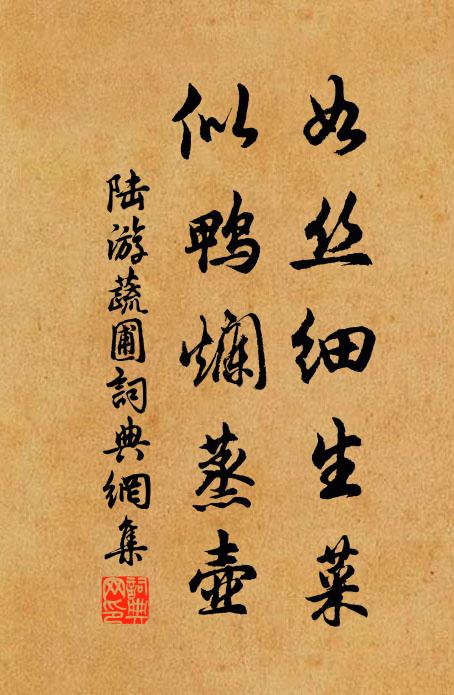 如丝细生菜
似鸭烂蒸壶
陆游蔬圃詞典網集
詞典网印